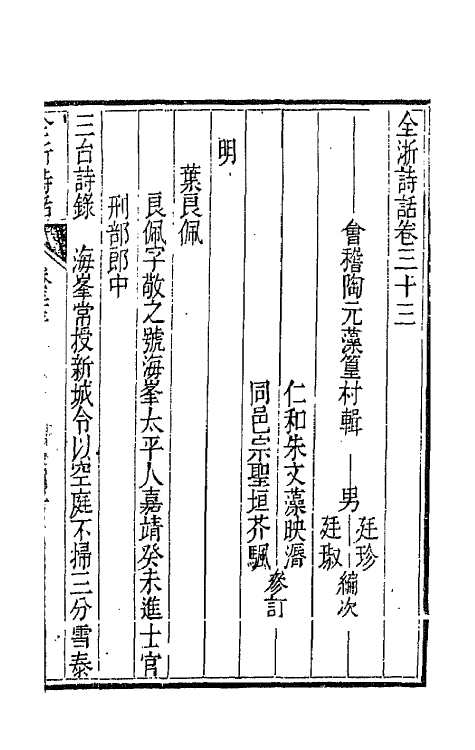 全浙詩話卷三十三
會稽陶元藻篁村輯
男
廷珍
廷琡
編次
仁和朱文藻映漘
同邑宗聖垣芥颿
參訂
明
葉良佩
良佩字敬之號海峯太平人嘉靖癸未進士官
刑部郎中
三台詩錄　海峯常授新城令以空庭不掃三分雪泰
全浙詩話